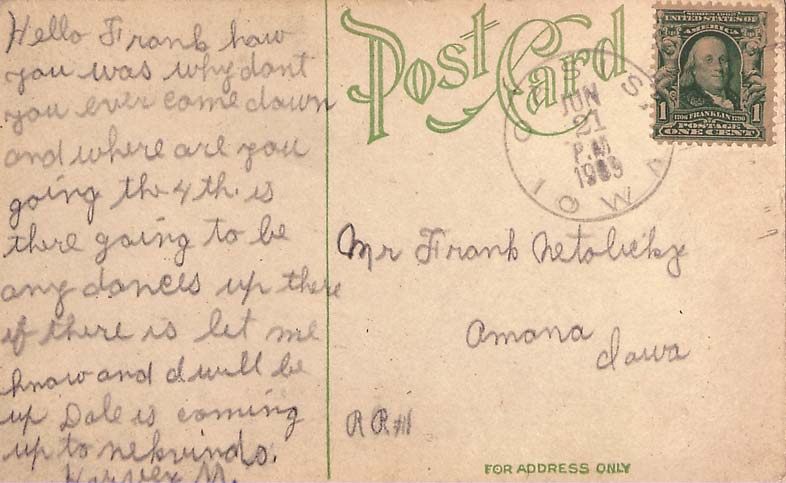 Hello Frank how
you was why dont
you ever come down
and where are you
going the 4th. is
there going to be
any dances up there
if there is let me
know and I will be
up Dale is coming
up to nekvindo.
Harvey M.
Post Card
JUN
21
P.M.
1909
IOWA
SERIES 1902
UNITED STATES OF
AMERICA
1706 FRANKLIN 1790
1 POSTAGE 1
ONE CENT
Mr Frank Netolicky
Amana
Iowa
R R #1
FOR ADDRESS ONLY